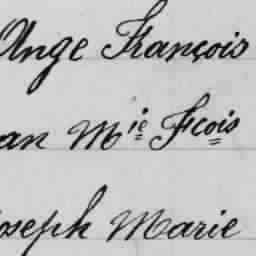 Ange François
an Mie Fcois
oseph Marie